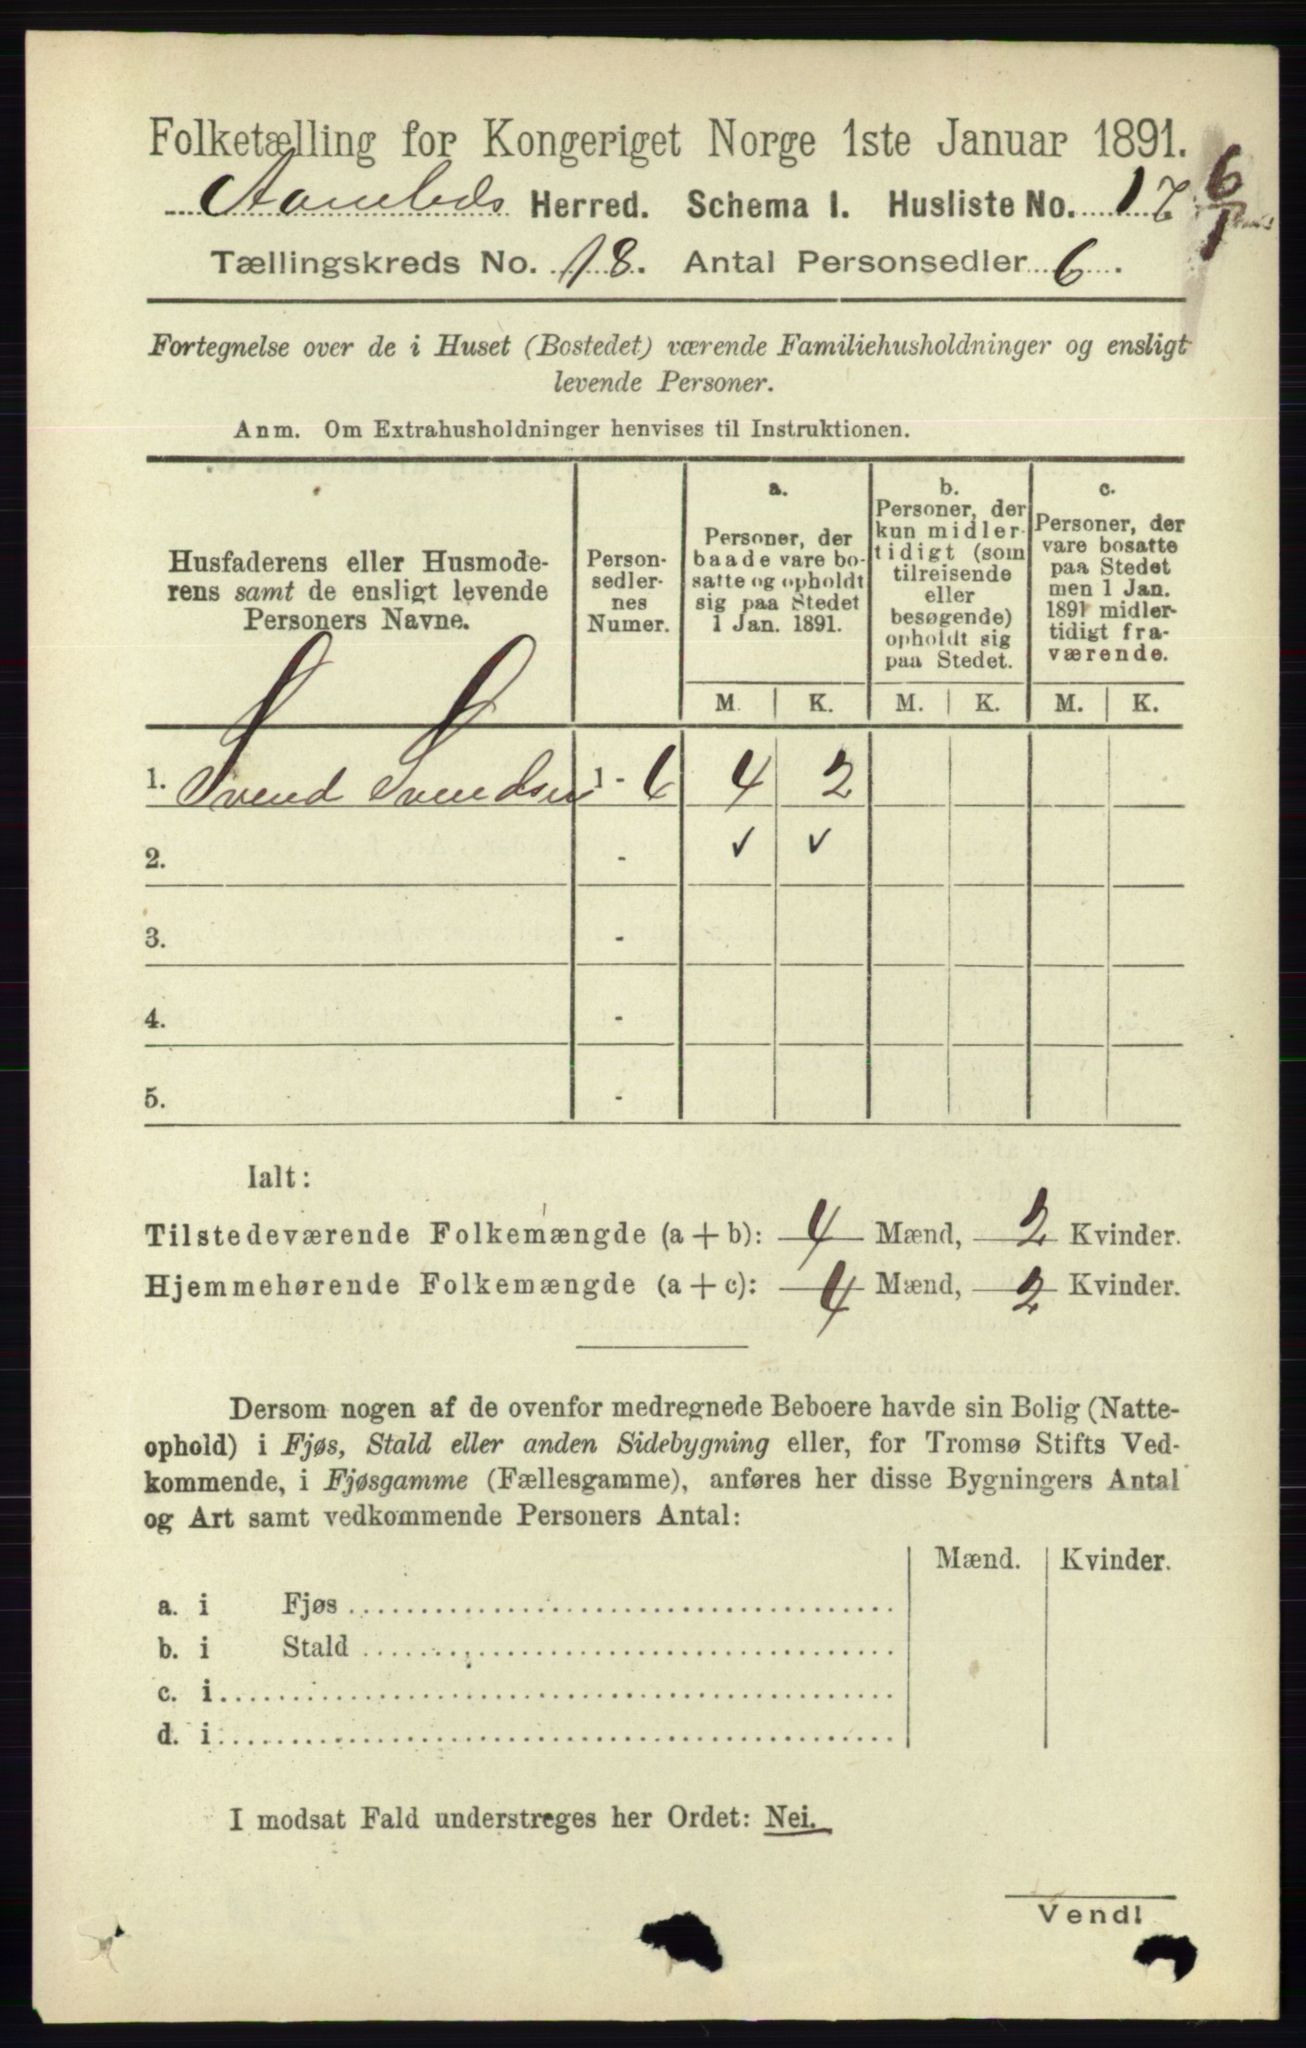 Folketælling for Kongeriget Norge 1ste Januar 1891.
Herred. Schema 1. Husliste No. 17 6/1
Tællingskreds No. 18. Antal Personsedler 6.
Fortegnelse over de i Huset (Bostedet) værende Familiehusholdninger og ensligt
levende Personer.
Anm. Om Extrahusholdninger henvises til Instruktionen.
Husfaderens eller Husmode-
rens samt de ensligt levende
Personers Navne.
Person-
sedler-
nes
Numer.
a.
Personer, der
baade vare bo-
satte og opholdt
sig paa Stedet
1 Jan. 1891.
b.
Personer, der
kun midler-
tidigt (som
tilreisende
eller
besøgende)
opholdt sig
paa Stedet.
c.
Personer, der
vare bosatte
paa Stedet
men 1 Jan.
1891 midler-
tidigt fra-
værende.
M. K. M. K. M. K.
1. Svend Svendsen 1 - 6 4 2
2. - ✓ ✓
3. -
4. -
5. -
Ialt:
Tilstedeværende Folkemængde (a + b): 4 Mænd, 2 Kvinder.
Hjemmehørende Folkemængde (a + c): 4 Mænd, 2 Kvinder.
Dersom nogen af de ovenfor medregnede Beboere havde sin Bolig (Natte-
ophold) i Fjøs, Stald eller anden Sidebygning eller, for Tromsø Stifts Ved-
kommende, i Fjøsgamme (Fællesgamme), anføres her disse Bygningers Antal
og Art samt vedkommende Personers Antal:
Mænd. Kvinder.
a. i Fjøs
b. i Stald
c. i
d. i
I modsat Fald understreges her Ordet: Nei.
Vend!